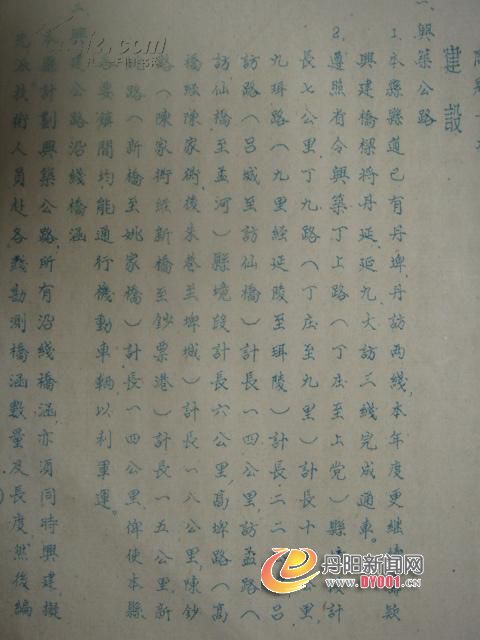 建設
一、興築公路
1.本縣縣道已有丹埤、丹訪两綫，本年度更繼續
興建橋樑將丹延、延九、大訪三綫完成通車。
2.遵照省令興築丁上路（丁庄至上党）縣 計
長七公里，丁九路（丁庄至九里）計長十 公里，
九珥路（九里經延陵至珥陵）計長二二 吕
訪路（吕城至訪仙橋）計長一四公里，訪孟路（
訪仙橋至孟河）縣境段計長六公里，高埤路（高
橋經陳家術後朱巷至埤城）計長一八公里，陳鈔
路（陳家術經新橋至鈔票港）計長一五公里，新
路（新橋至姚家橋）計長一四公里，俾使本縣
各要 間均能通行機動車輛以利軍運。
二、興建公路沿綫橋涵
本縣計劃興築公路所有沿綫橋涵亦須同時興建擬
先派技術人員赴各綫勘測橋涵數量及長度然後編
丹阳新闻网
WWW.DY001.CN